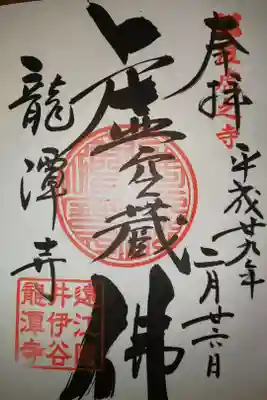 奉拝
平成廿九年
二月廿六日
虚空蔵
佛
龍潭寺
遠江国
井伊谷
龍潭寺